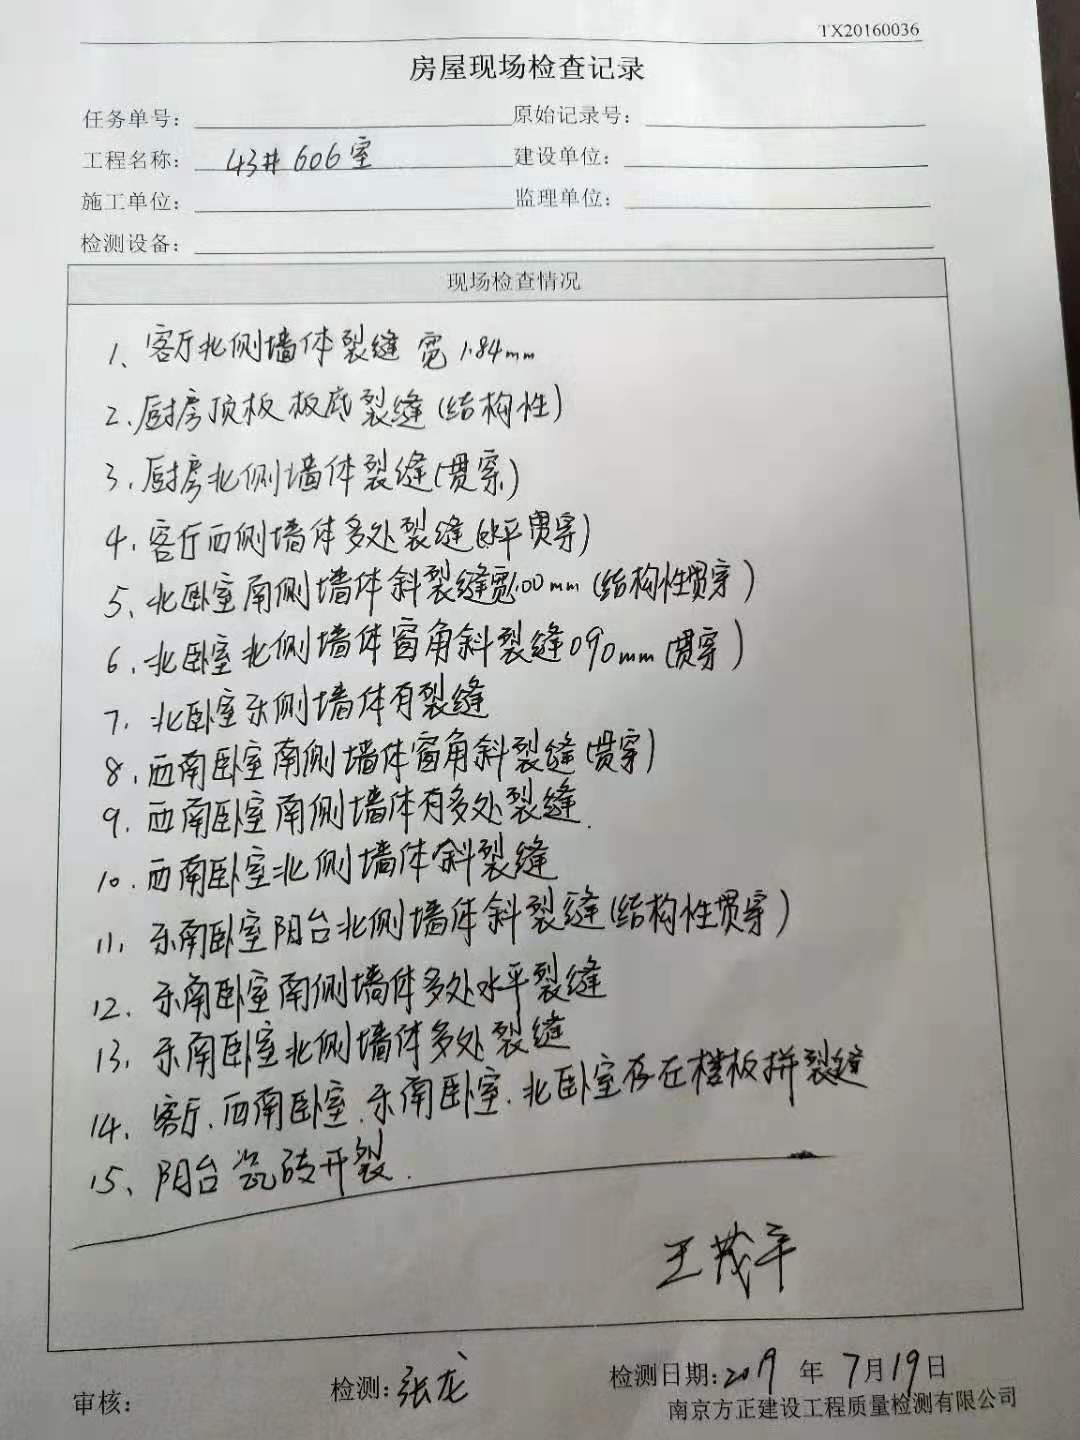 TX20160036
房屋现场检查记录
任务单号： 原始记录号：
工程名称： 43# 606室 建设单位：
施工单位： 监理单位：
检测设备：
现场检查情况
1、客厅北侧墙体裂缝 宽1.84mm
2.厨房顶板板底裂缝(结构性)
3.厨房北侧墙体裂缝(贯穿)
4.客厅西侧墙体多处裂缝(水平贯穿)
5、北卧室南侧墙体斜裂缝宽1.00mm(结构性贯穿)
6、北卧室北侧墙体窗角斜裂缝0.90mm(贯穿)
7.北卧室东侧墙体有裂缝
8.西南卧室南侧墙体窗角斜裂缝(贯穿)
9.西南卧室南侧墙体有多处裂缝.
10.西南卧室北侧墙体斜裂缝
11、东南卧室阳台北侧墙体斜裂缝(结构性贯穿)
12、东南卧室南侧墙体多处水平裂缝
13、东南卧室北侧墙体多处裂缝
14、客厅、西南卧室、东南卧室、北卧室存在楼板拼裂缝
15、阳台瓷砖开裂.
王茂平
审核： 检测:张龙 检测日期:2019年7月19日
南京方正建设工程质量检测有限公司